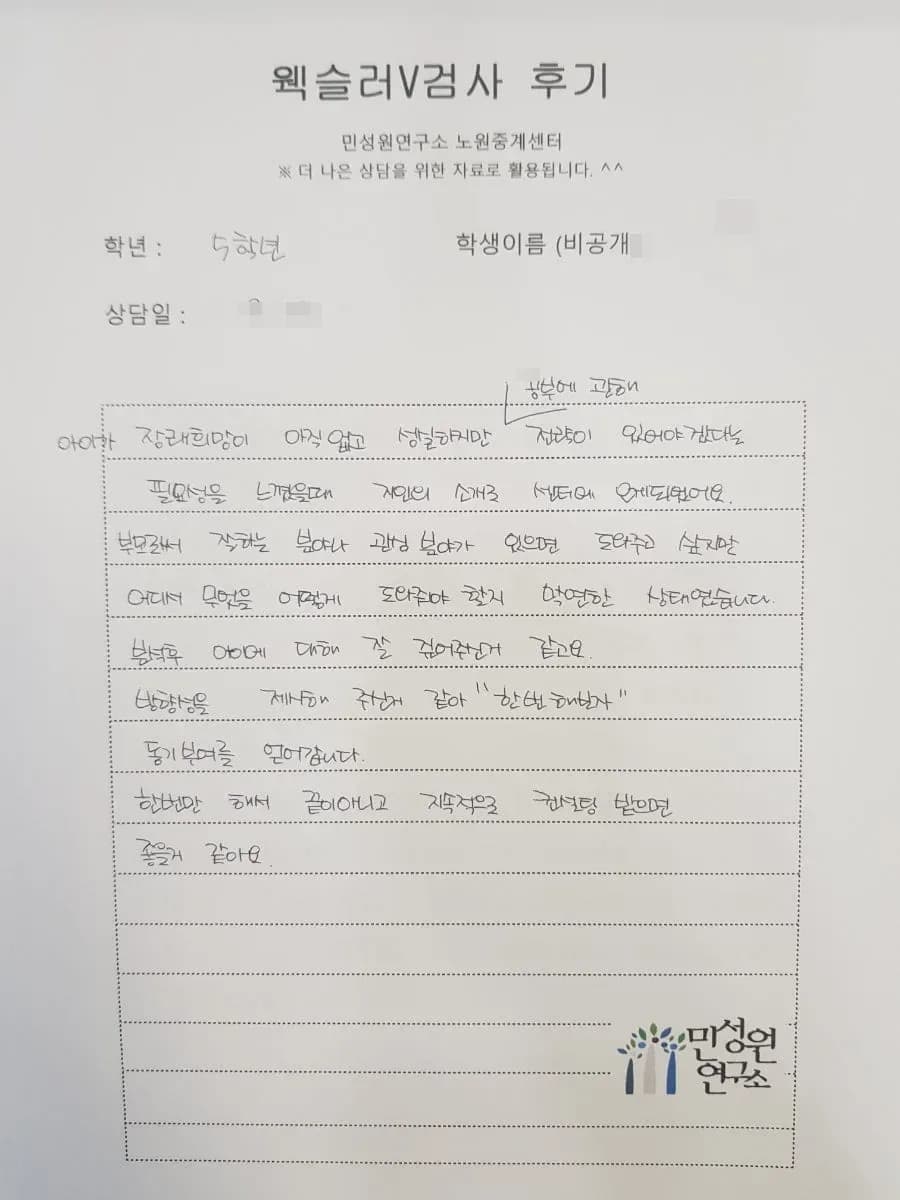 웩슬러V검사 후기
민성원연구소 노원중계센터
※ 더 나은 상담을 위한 자료로 활용됩니다. ^^
학년 : 5학년 학생이름 (비공개
상담일 :
공부에 관해
아이가 장래희망이 아직 없고 성실하지만 전략이 있어야겠다는
필요성을 느꼈을때 지인의 소개로 센터에 오게되었어요.
부모로써 잘하는 분야나 관심 분야가 있으면 도와주고 싶지만
어디서 무엇을 어떻게 도와주야 할지 막연한 상태였습니다.
분석후 아이에 대해 잘 짚어주신거 같고요.
방향성을 제시해 주신거 같아 "한번 해보자"
동기부여를 얻어갑니다.
한번만 해서 끝이아니고 지속적으로 컨설팅 받으면
좋을거 같아요.
민성원
연구소